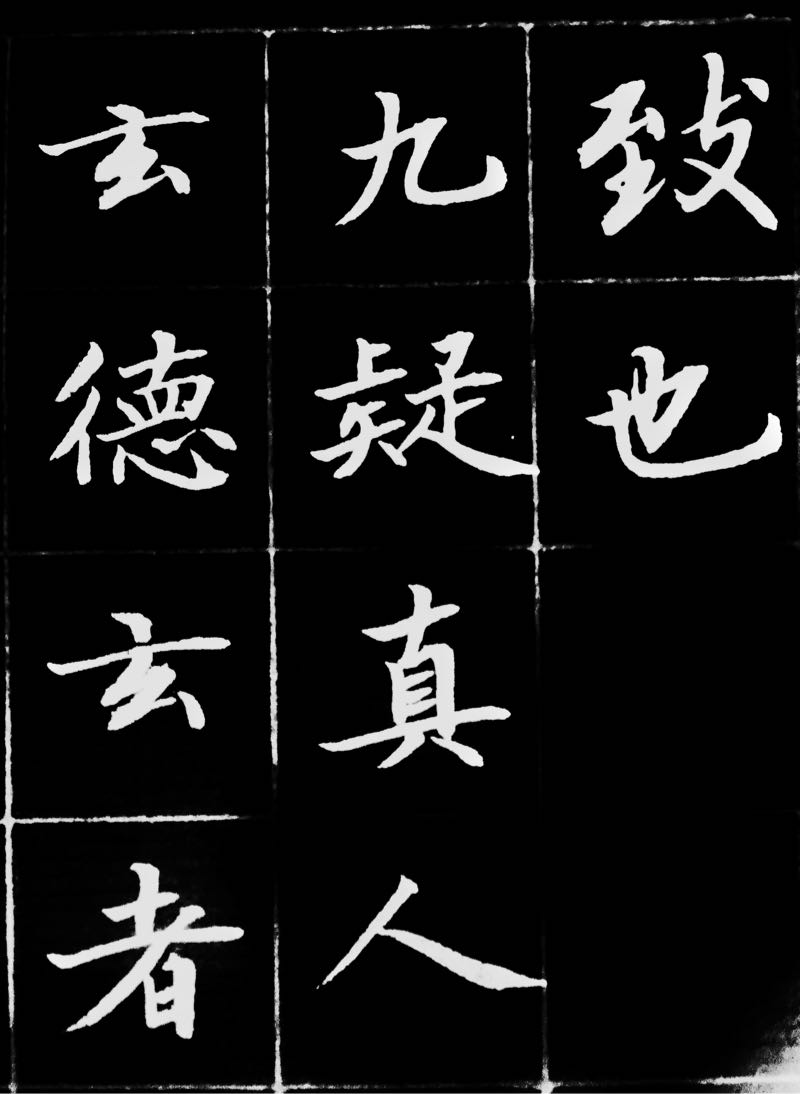 致也
九疑真人
玄德玄者